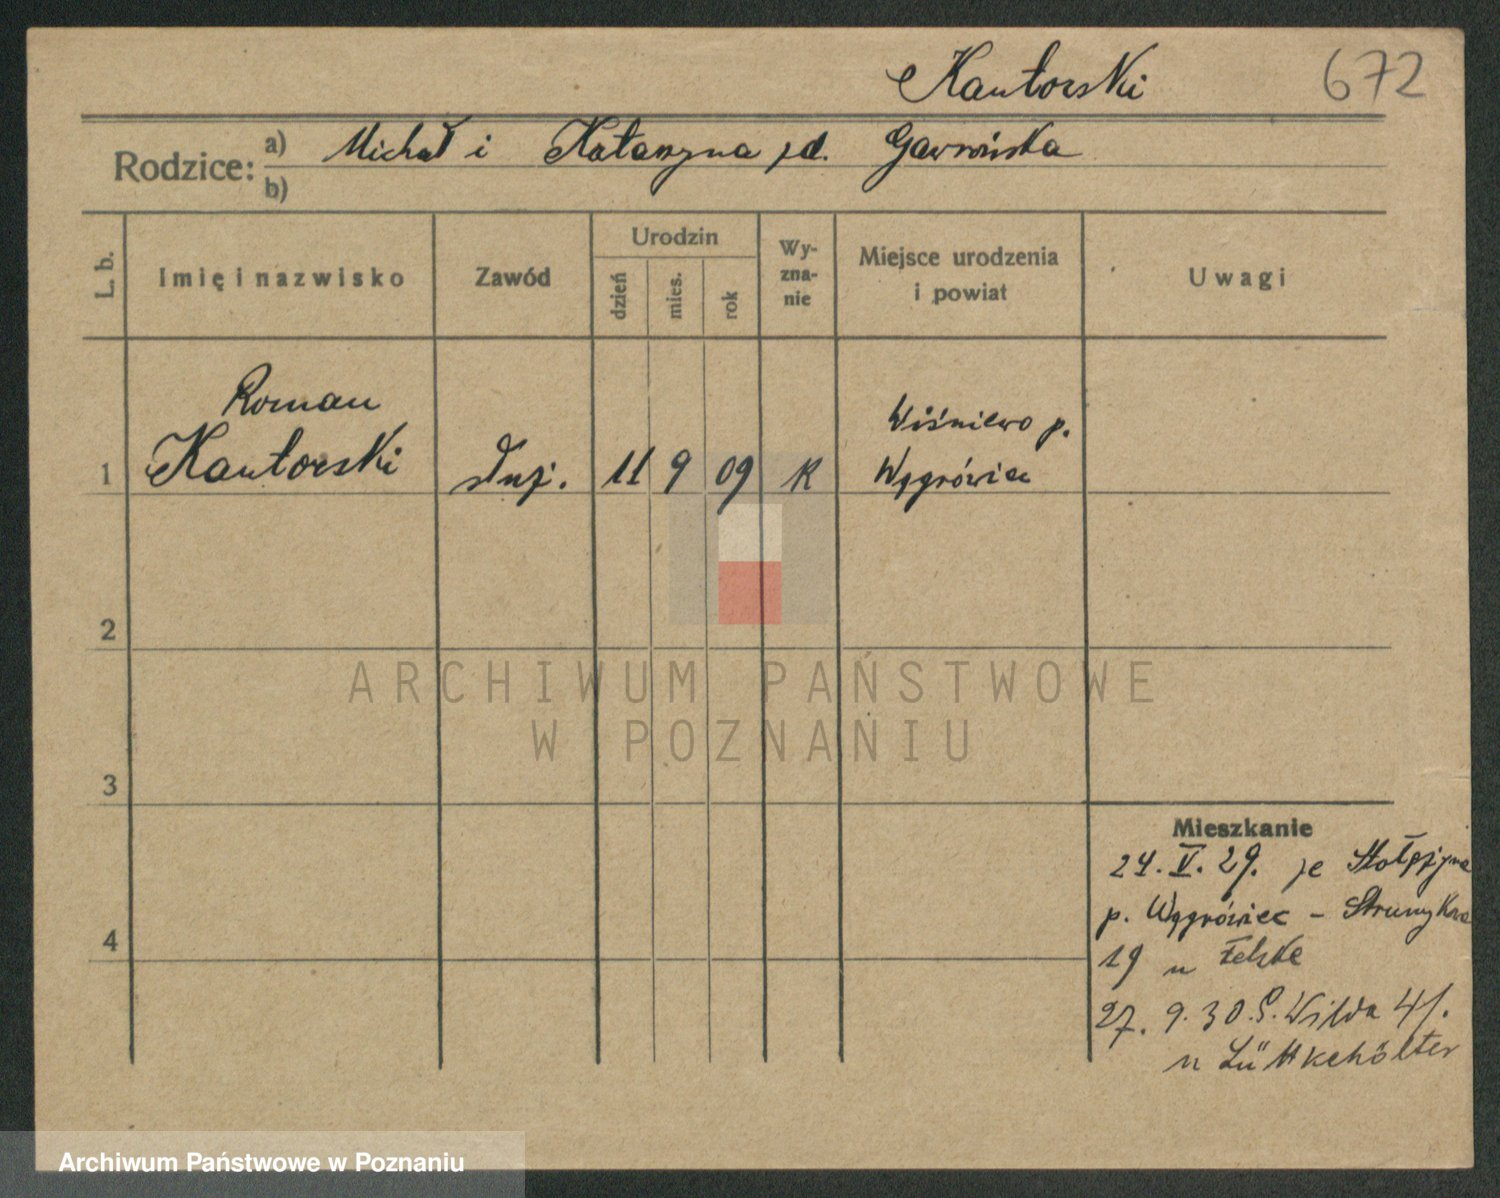 Kantorski 672
Rodzice: a) Michał i Katarzyna zd.
b)
L. b.
Imię i nazwisko
Zawód
Urodzin
dzień
mies.
rok
Wy-
zna-
nie
Miejsce urodzenia
i powiat
Uwagi
Roman
Wiśniewo p.
1 Kantorski 11 9 09 K Wągrówiec
2
3
4
ARCHIWUM PAŃSTWOWE
W POZNANIU
Mieszkanie
24. V. 29. ze
p. Wągrówiec -
19 u
27. 9. 30. G. Wilda 41.
u Lüttkehölter
Archiwum Państwowe w Poznaniu